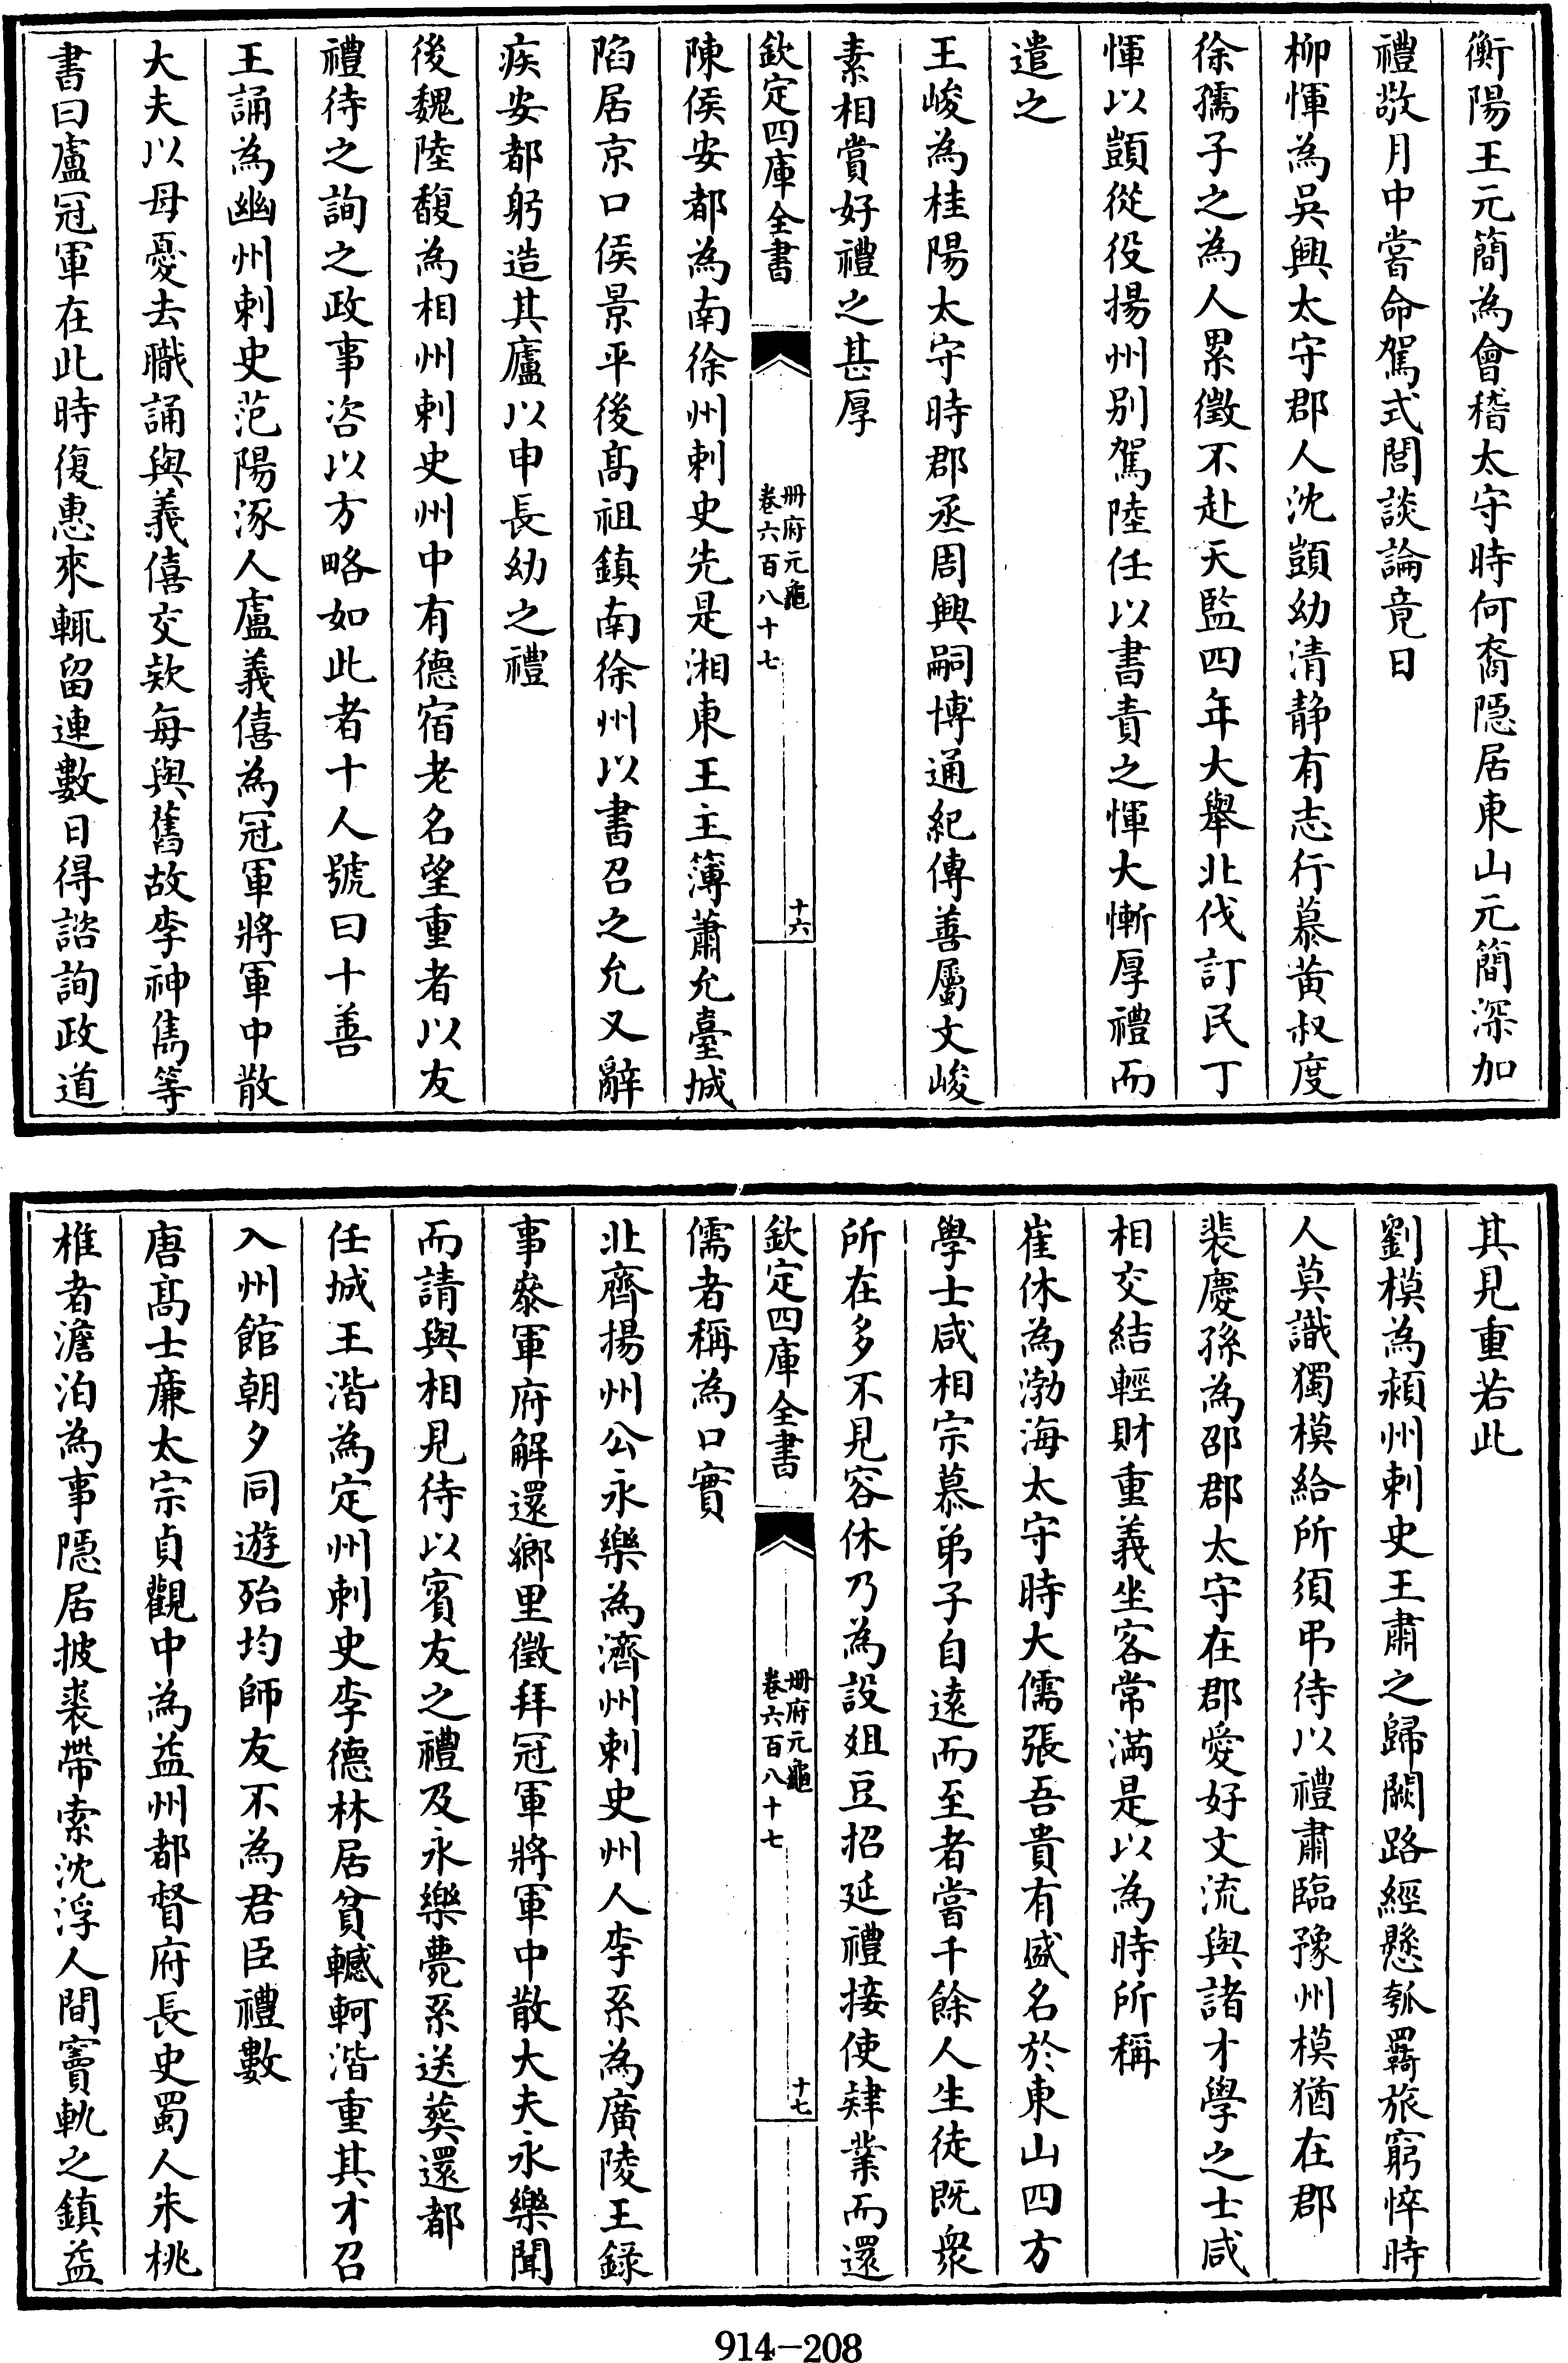 衡陽王元簡為會稽太守時何裔隱居東山元簡深加
禮敬月中嘗命駕式閭談論竟日
柳惲為吳興太守郡人沈顗幼清静有志行慕黃叔度
徐孺子之為人累徵不赴天監四年大舉北伐訂民丁
惲以顗從役揚州别駕陸任以書責之惲大慚厚禮而
遣之
王峻為桂陽太守時郡丞周興嗣博通紀傳善屬文峻
素相賞好禮之甚厚
欽定四庫全書
册府元龜
卷六百八十七
十六
陳侯安都為南徐州刺史先是湘東王主簿蕭允臺城
陷居京口侯景平後髙祖鎮南徐州以書召之允又辭
疾安都躬造其廬以申長幼之禮
後魏陸馥為相州刺史州中有德宿老名望重者以友
禮待之詢之政事咨以方略如此者十人號曰十善
王誦為幽州刺史范陽涿人盧義僖為冠軍將軍中散
大夫以母憂去職誦與義僖交欵每與舊故李神雋等
書曰盧冠軍在此時復惠來輒留連數日得諮詢政道
其見重若此
劉模為潁州刺史王肅之歸闕路經懸瓠羇旅窮悴時
人莫識獨模給所須弔待以禮肅臨豫州模猶在郡
裴慶孫為邵郡太守在郡愛好文流與諸才學之士咸
相交結輕財重義坐客常滿是以為時所稱
崔休為渤海太守時大儒張吾貴有盛名於東山四方
學士咸相宗慕弟子自逺而至者嘗千餘人生徒既衆
所在多不見容休乃為設俎豆招延禮接使肄業而還
欽定四庫全書
册府元龜
卷六百八十七
十七
儒者稱為口實
北齊揚州公永樂為濟州刺史州人李系為廣陵王録
事叅軍府解還鄉里徵拜冠軍將軍中散大夫永樂聞
而請與相見待以賓友之禮及永樂薨系送葬還都
任城王湝為定州刺史李德林居貧轗軻湝重其才召
入州館朝夕同遊殆均師友不為君臣禮數
唐髙士亷太宗貞觀中為益州都督府長史蜀人朱桃
椎者澹泊為事隱居披裘帶索沈浮人間竇軌之鎮益
914-208